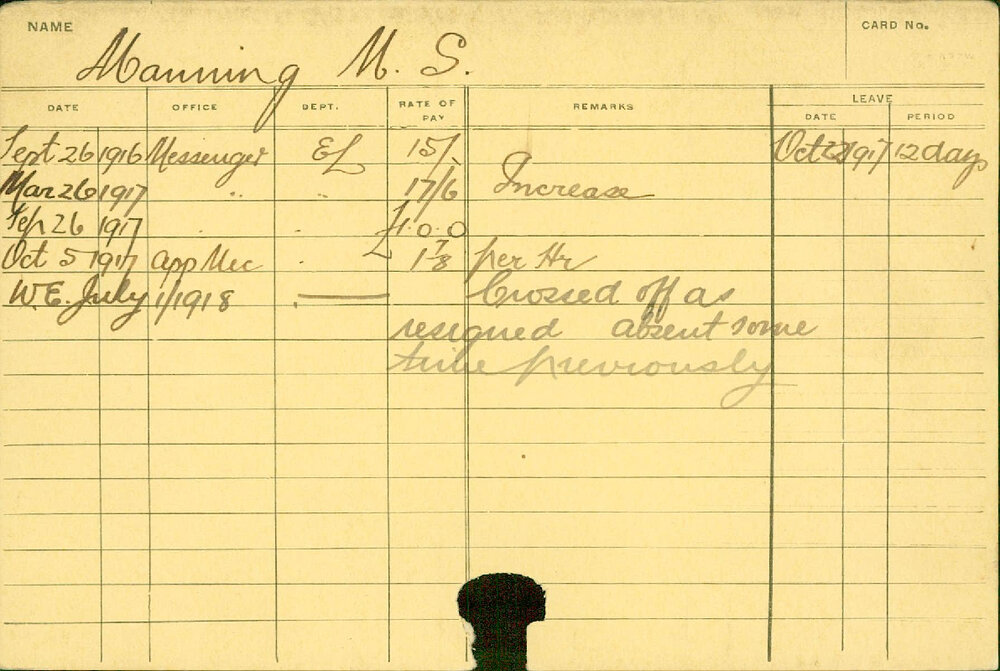 NAME
CARD No.
Manning M. S.
DATE OFFICE DEPT. RATE OF PAY REMARKS LEAVE
DATE PERIOD
Sept 26 1916 Messenger EL 15/. Oct 1917 12 days
Mar 26 1917 " " 17/6 Increase
Sep 26 1917 . . £1.0.0
Oct 5 1917 App Mec . 1 7/8 per Hr
W.E. July 1/1918 Crossed off as
resigned absent some
time previously